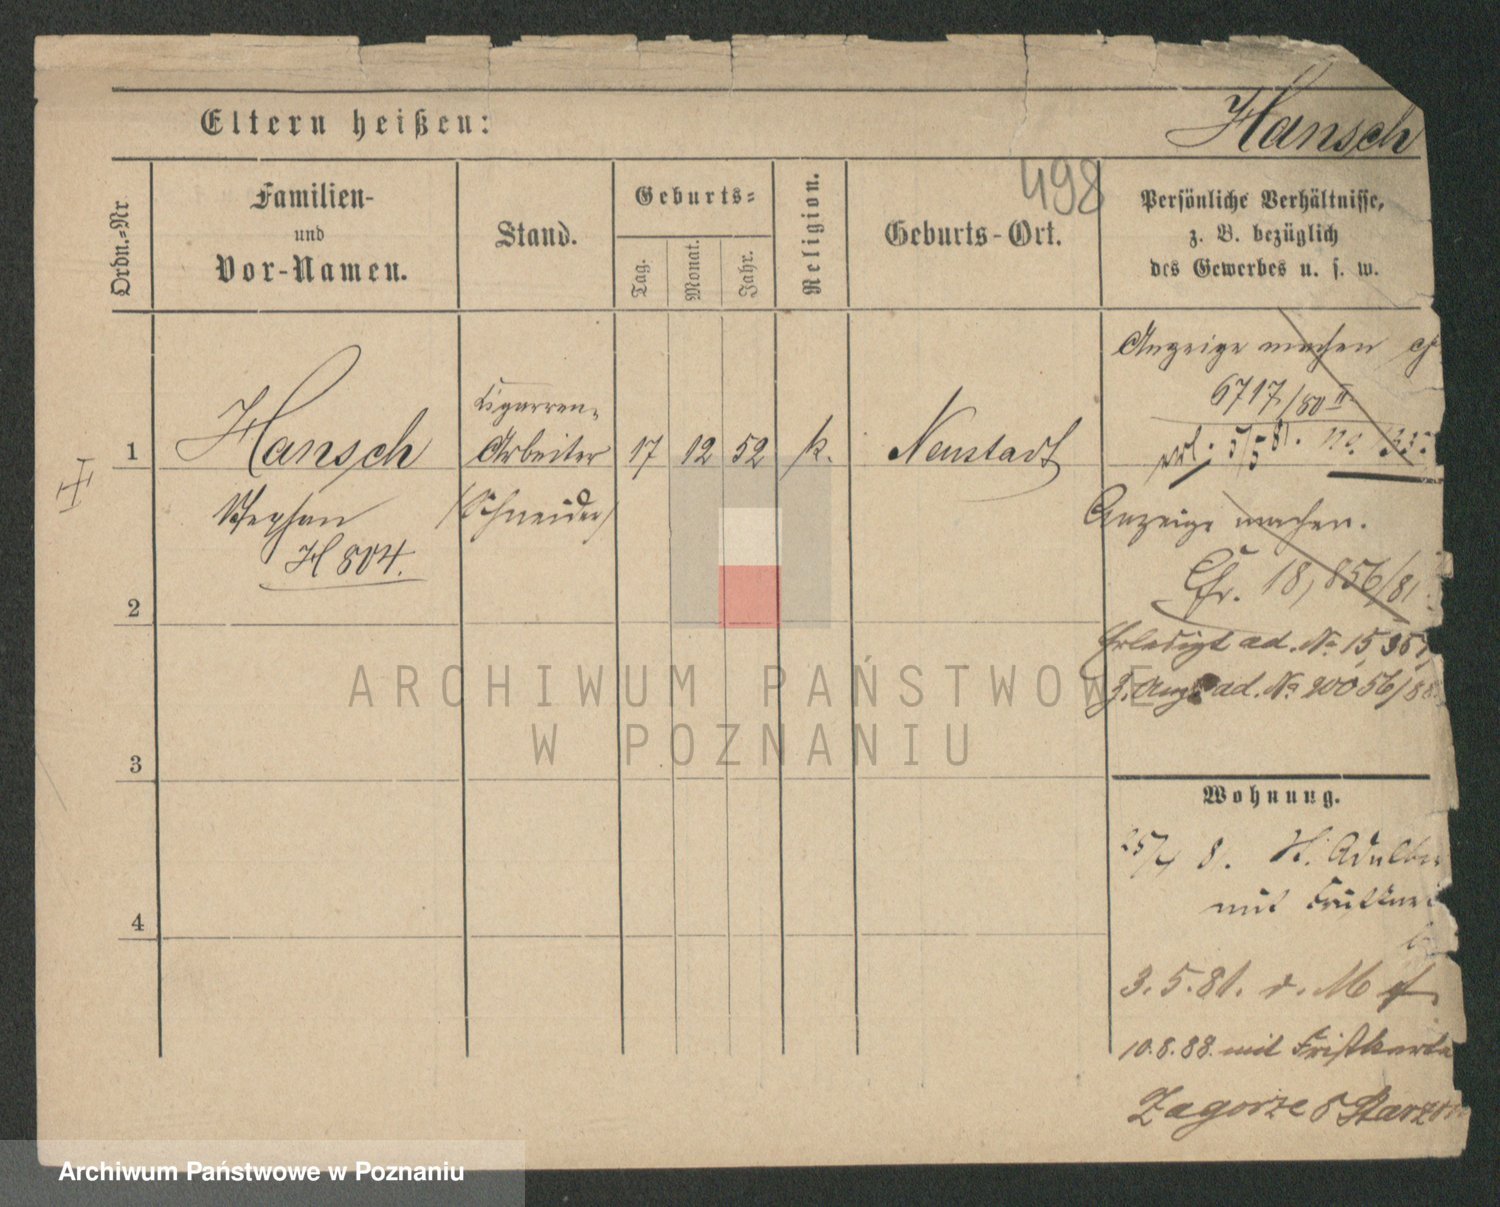 Eltern heißen:
Hansch
498
Ordn.-Nr
Familien-
und
Vor-Namen.
Stand.
Geburts-
Tag.
Monat.
Jahr.
Religion.
Geburts-Ort.
Persönliche Verhältnisse,
z. B. bezüglich
des Gewerbes u. s. w.
Anzeige machen
6717/80 II
1
Hansch
Cigarren-
Arbeiter
17
12
52
k.
Neustadt
Stephan
(Schneider)
H 804.
Anzeige machen.
18,856/81
2
Erledigt ad. No 15,
ad. No 20056/88
ARCHIWUM PAŃSTWOWE
W POZNANIU
3
Wohnung.
25/4 8.
mit
4
3.5.81. v.
10.8.88. mit Fristkarte
Zagorze
Archiwum Państwowe w Poznaniu